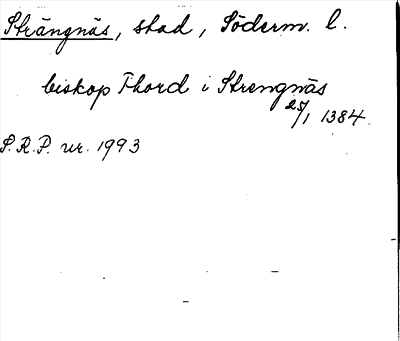 Strängnäs, stad, Söderm. l.
biskop Thord i Strengnäs
25/1 1384.
S.R.P. nr. 1993